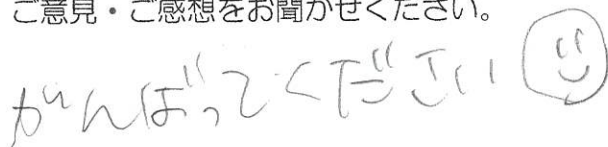 ご意見・ご感想をお聞かせください。
がんばってください